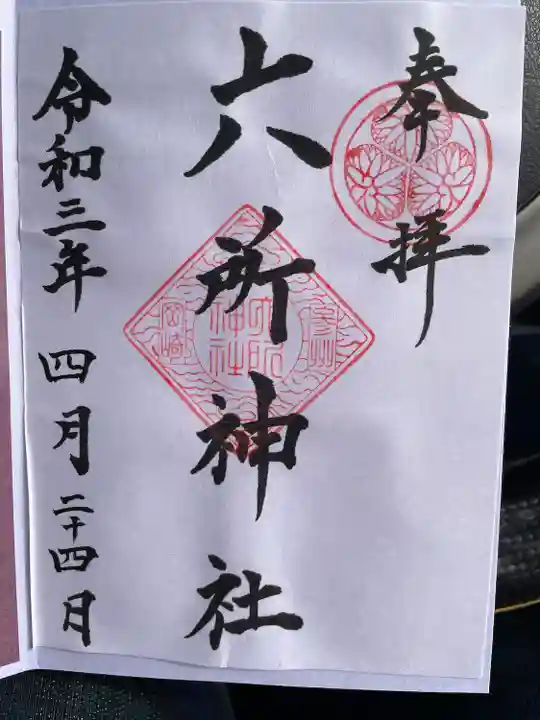 奉拝
六所神社
令和三年四月二十四日
參州
六所神社
岡崎